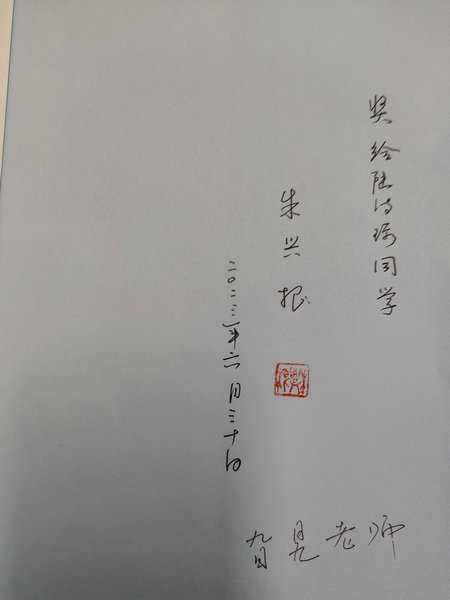 奖给陆诗瑶同学
朱兴根
二〇二三年六月三十日
旮旯老师